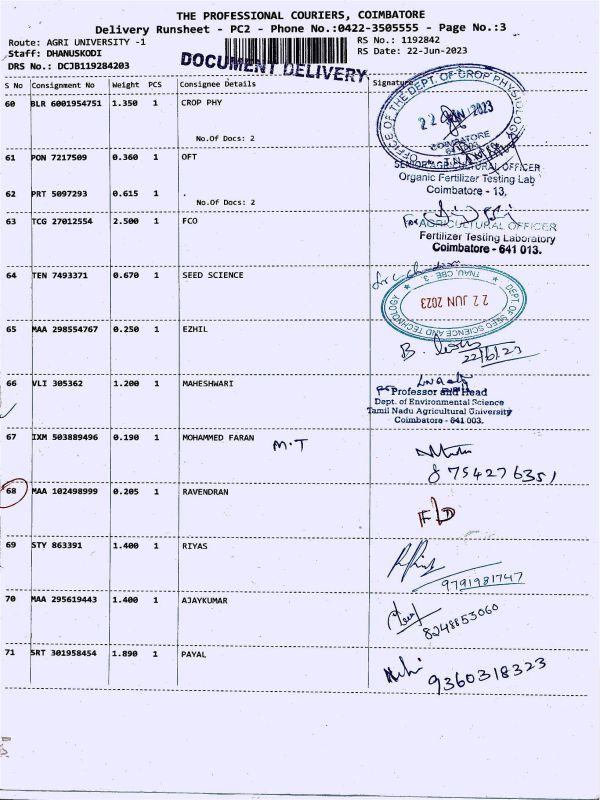 THE PROFESSIONAL COURIERS, COIMBATORE
Delivery Runsheet - PC2 - Phone No.:0422-3505555 - Page No.:3
Route: AGRI UNIVERSITY -1
RS No.: 1192842
Staff: DHANUSKODI
RS Date: 22-Jun-2023
DRS No.: DCJB119284203
DOCUMENT DELIVERY
S No Consignment No Weight PCS Consignee Details Signature
60 BLR 6001954751 1.350 1 CROP PHY
No.Of Docs: 2
OFFICE OF THE DEPT. OF CROP PHYSIOLOGY
22 JUN 2023
COIMBATORE
61 PON 7217509 0.360 1 OFT
SENIOR AGRICULTURAL OFFICER
Organic Fertilizer Testing Lab
Coimbatore - 13.
62 PRT 5097293 0.615 1 .
No.Of Docs: 2
63 TCG 27012554 2.500 1 FCO
For AGRICULTURAL OFFICER
Fertilizer Testing Laboratory
Coimbatore - 641 013.
64 TEN 7493371 0.670 1 SEED SCIENCE
DEPT. OF SEED SCIENCE AND TECHNOLOGY
TNAU, CBE - 3.
22 JUN 2023
65 MAA 298554767 0.250 1 EZHIL
B.
22/6/23
66 VLI 305362 1.200 1 MAHESHWARI
For Professor and Head
Dept. of Environmental Science
Tamil Nadu Agricultural University
Coimbatore - 641 003.
67 IXM 503889496 0.190 1 MOHAMMED FARAN M.T
8754276351
68 MAA 102498999 0.205 1 RAVENDRAN
F/D
69 STY 863391 1.400 1 RIYAS
9791981747
70 MAA 295619443 1.400 1 AJAYKUMAR
8248853060
71 SRT 301958454 1.890 1 PAYAL
9360318323